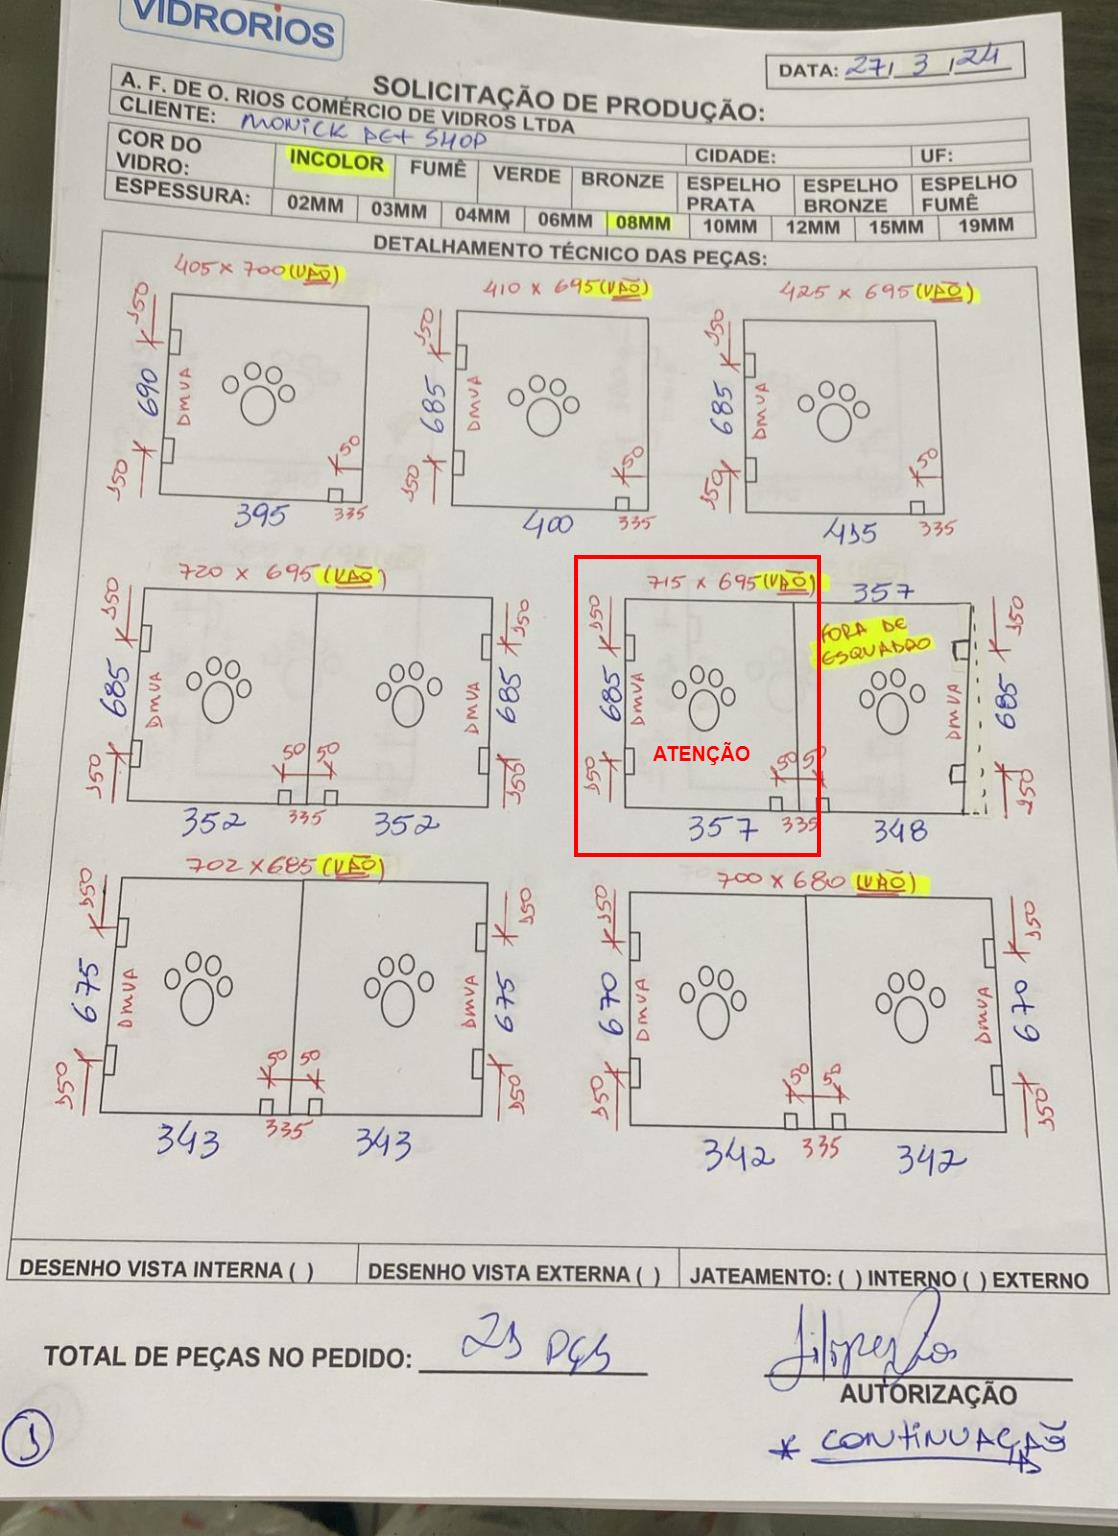 VIDRORIOS
DATA: 27/3/24
SOLICITAÇÃO DE PRODUÇÃO:
A. F. DE O. RIOS COMÉRCIO DE VIDROS LTDA
CLIENTE: MONICK PET SHOP
CIDADE: UF:
COR DO VIDRO: INCOLOR FUMÊ VERDE BRONZE ESPELHO PRATA ESPELHO BRONZE ESPELHO FUMÊ
ESPESSURA: 02MM 03MM 04MM 06MM 08MM 10MM 12MM 15MM 19MM
DETALHAMENTO TÉCNICO DAS PEÇAS:
405 x 700 (VÃO)
150
690
DMVA
150
50
395
335
410 x 695 (VÃO)
150
685
DMVA
150
50
400
335
425 x 695 (VÃO)
150
685
DMVA
150
50
415
335
720 x 695 (VÃO)
150
150
685
DMVA
DMVA
685
150
50
50
150
352
335
352
715 x 695 (VÃO)
357
FORA DE
ESQUADRO
150
150
685
DMVA
DMVA
685
ATENÇÃO
150
50
50
150
357
335
348
702 x 685 (VÃO)
150
150
675
DMVA
DMVA
675
150
50
50
150
343
335
343
700 x 680 (VÃO)
150
150
670
DMVA
DMVA
670
150
50
50
150
342
335
342
DESENHO VISTA INTERNA ( ) DESENHO VISTA EXTERNA ( ) JATEAMENTO: ( ) INTERNO ( ) EXTERNO
TOTAL DE PEÇAS NO PEDIDO: 21 PÇS
AUTORIZAÇÃO
1
* CONTINUAÇÃO